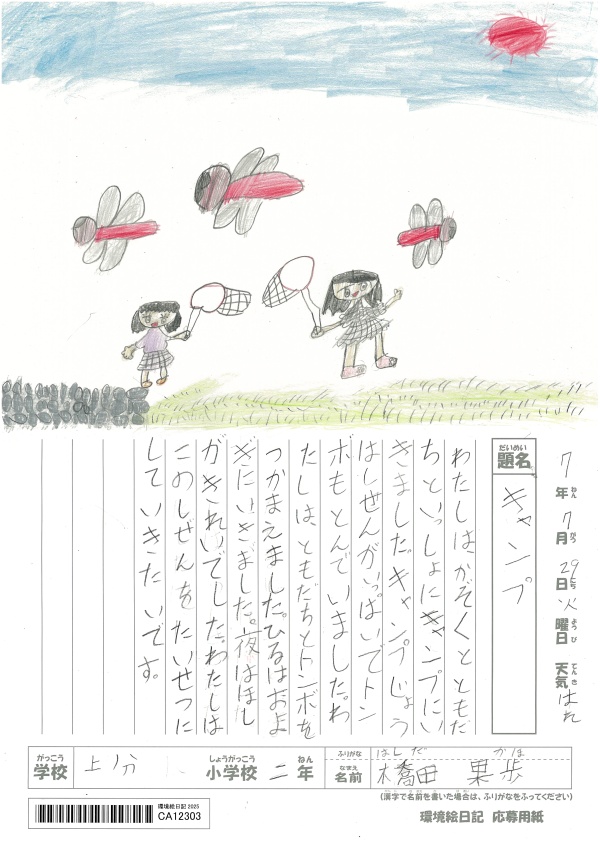 7年ねん7月がつ29日にち火曜日ようび 天気てんき はれ
題名だいめい キャンプ
わたしはかぞくとともだ
ちといっしょにキャンプにい
きました。キャンプじょう
はしぜんがいっぱいでトン
ボもとんでいました。わ
たしは、ともだちとトンボを
つかまえました。ひるはおよ
ぎにいきました。夜はほし
がきれいでした。わたしは
このしぜんをたいせつに
していきたいです。
がっこう しょうがっこう ねん ふりがな はしだ かほ
学校 小学校 二年 なまえ 名前 橋田 果歩
(漢字で名前を書いた場合は、ふりがなをふってください)
環境絵日記 2025
CA12303
環境絵日記 応募用紙